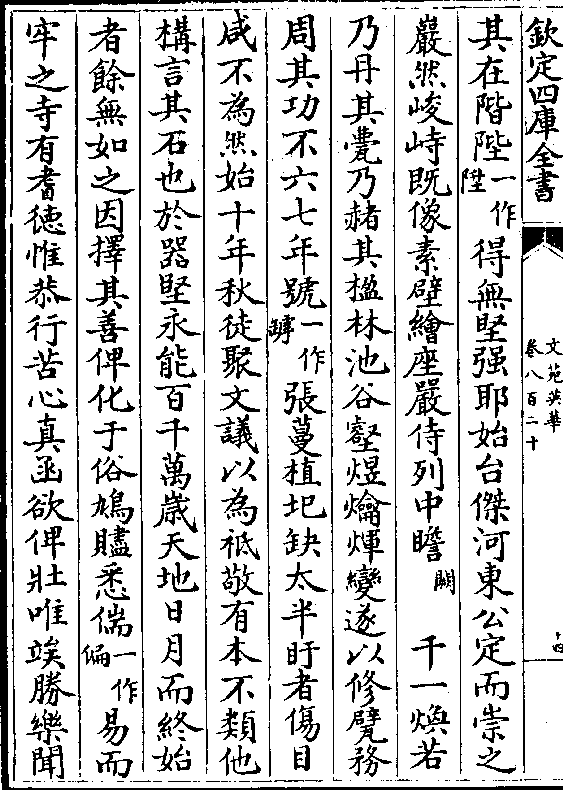 欽定四庫全書
文苑英華
卷八百二十
十四
其在階陛一作陞得無堅强耶始台傑河東公定而崇之
嚴然峻峙既像素壁繪座嚴侍列中瞻闕千一煥若
乃丹其甍乃赭其楹林池谷壑煜爚煇孌遂以修甓務
周其功不六七年號一作罅張蔓植圮缺太半盱者傷目
咸不為然始十年秋徒聚文議以為祗敬有本不類他
構言其石也於器堅永能百千萬歲天地日月而終始
者餘無如之因擇其善俾化于俗鳩贐悉偳一作偏易而
牢之寺有耆德惟恭行苦心真函欲俾壯唯竢勝樂聞